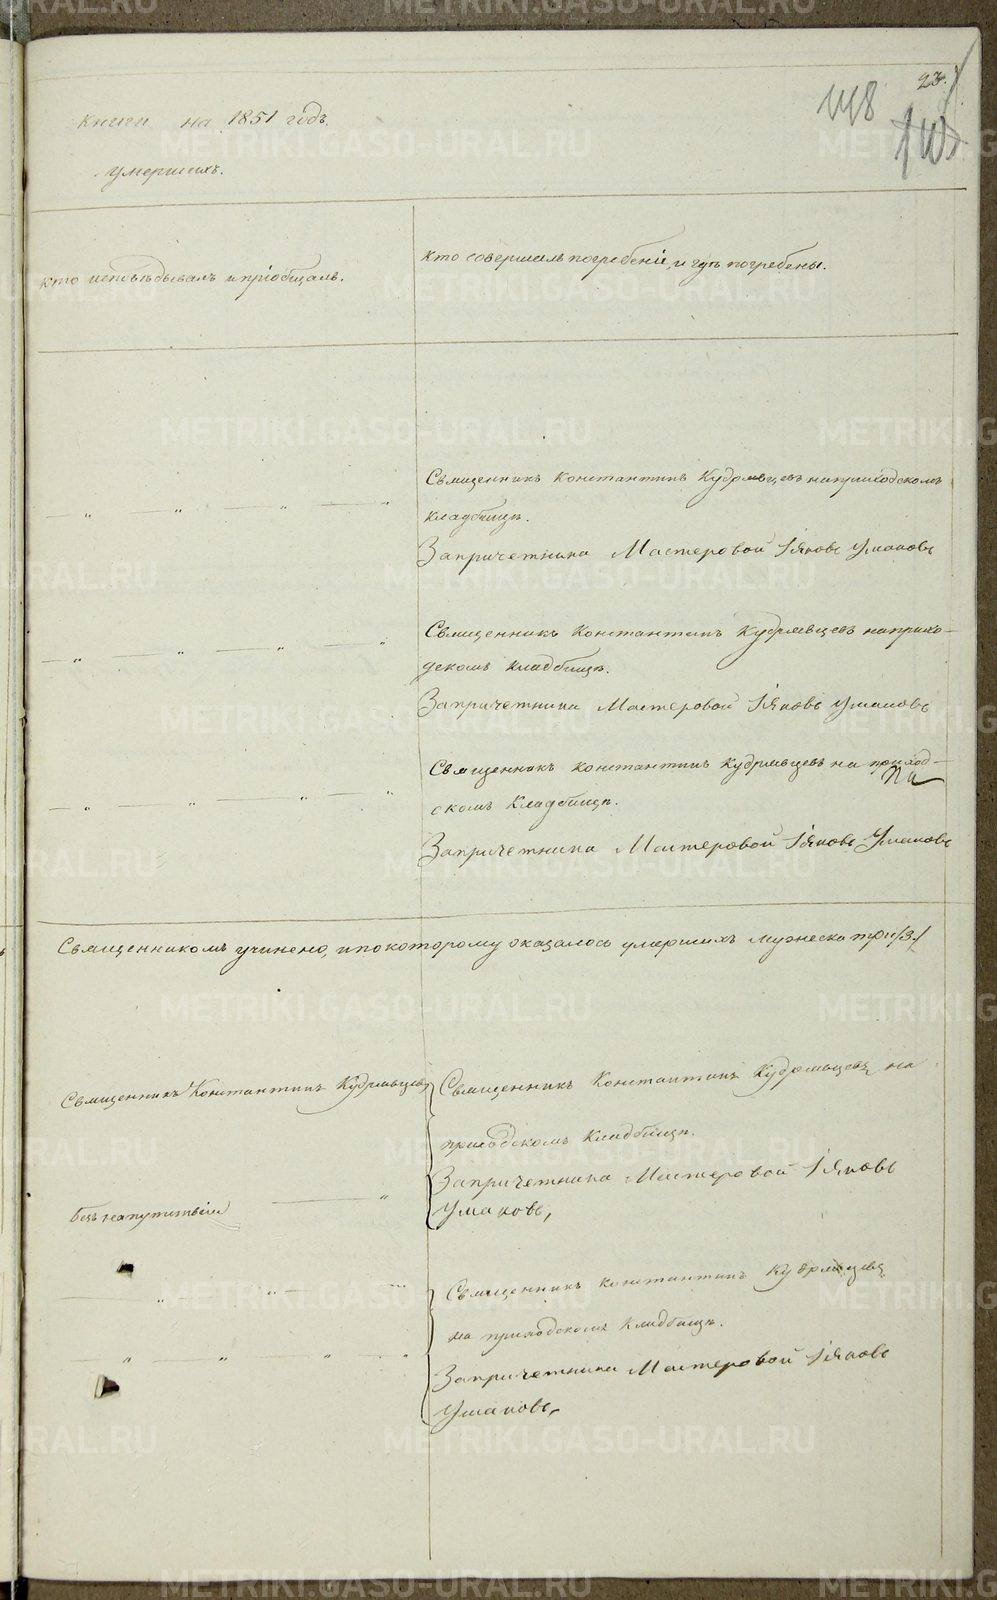 23.
148
книги на 1851 годъ.
умершихъ.
кто исповѣдывалъ и пріобщалъ.
кто совершалъ погребеніе, и гдѣ погребены.
Священникъ Константинъ Кудрявцевъ на приходскомъ
кладбищѣ.
За причетника Мастеровой Іяковъ Ушаковъ
Священникъ Константинъ Кудрявцевъ на прихо-
дскомъ кладбищѣ.
За причетника Мастеровой Іяковъ Ушаковъ
Священникъ Константинъ Кудрявцевъ на приход-
скомъ кладбищѣ.
За причетника Мастеровой Іяковъ Ушаковъ
Священникомъ учинено, и по которому оказалось умершихъ мужеска три /3./
Священникъ Константинъ Кудрявцевъ
Священникъ Константинъ Кудрявцевъ на
приходскомъ кладбищѣ.
За причетника Мастеровой Іяковъ
Ушаковъ,
безъ напутствія
Священникъ Константинъ Кудрявцевъ
на приходскомъ кладбищѣ.
За причетника Мастеровой Іяковъ
Ушаковъ,
METRIKI.GASO-URAL.RU